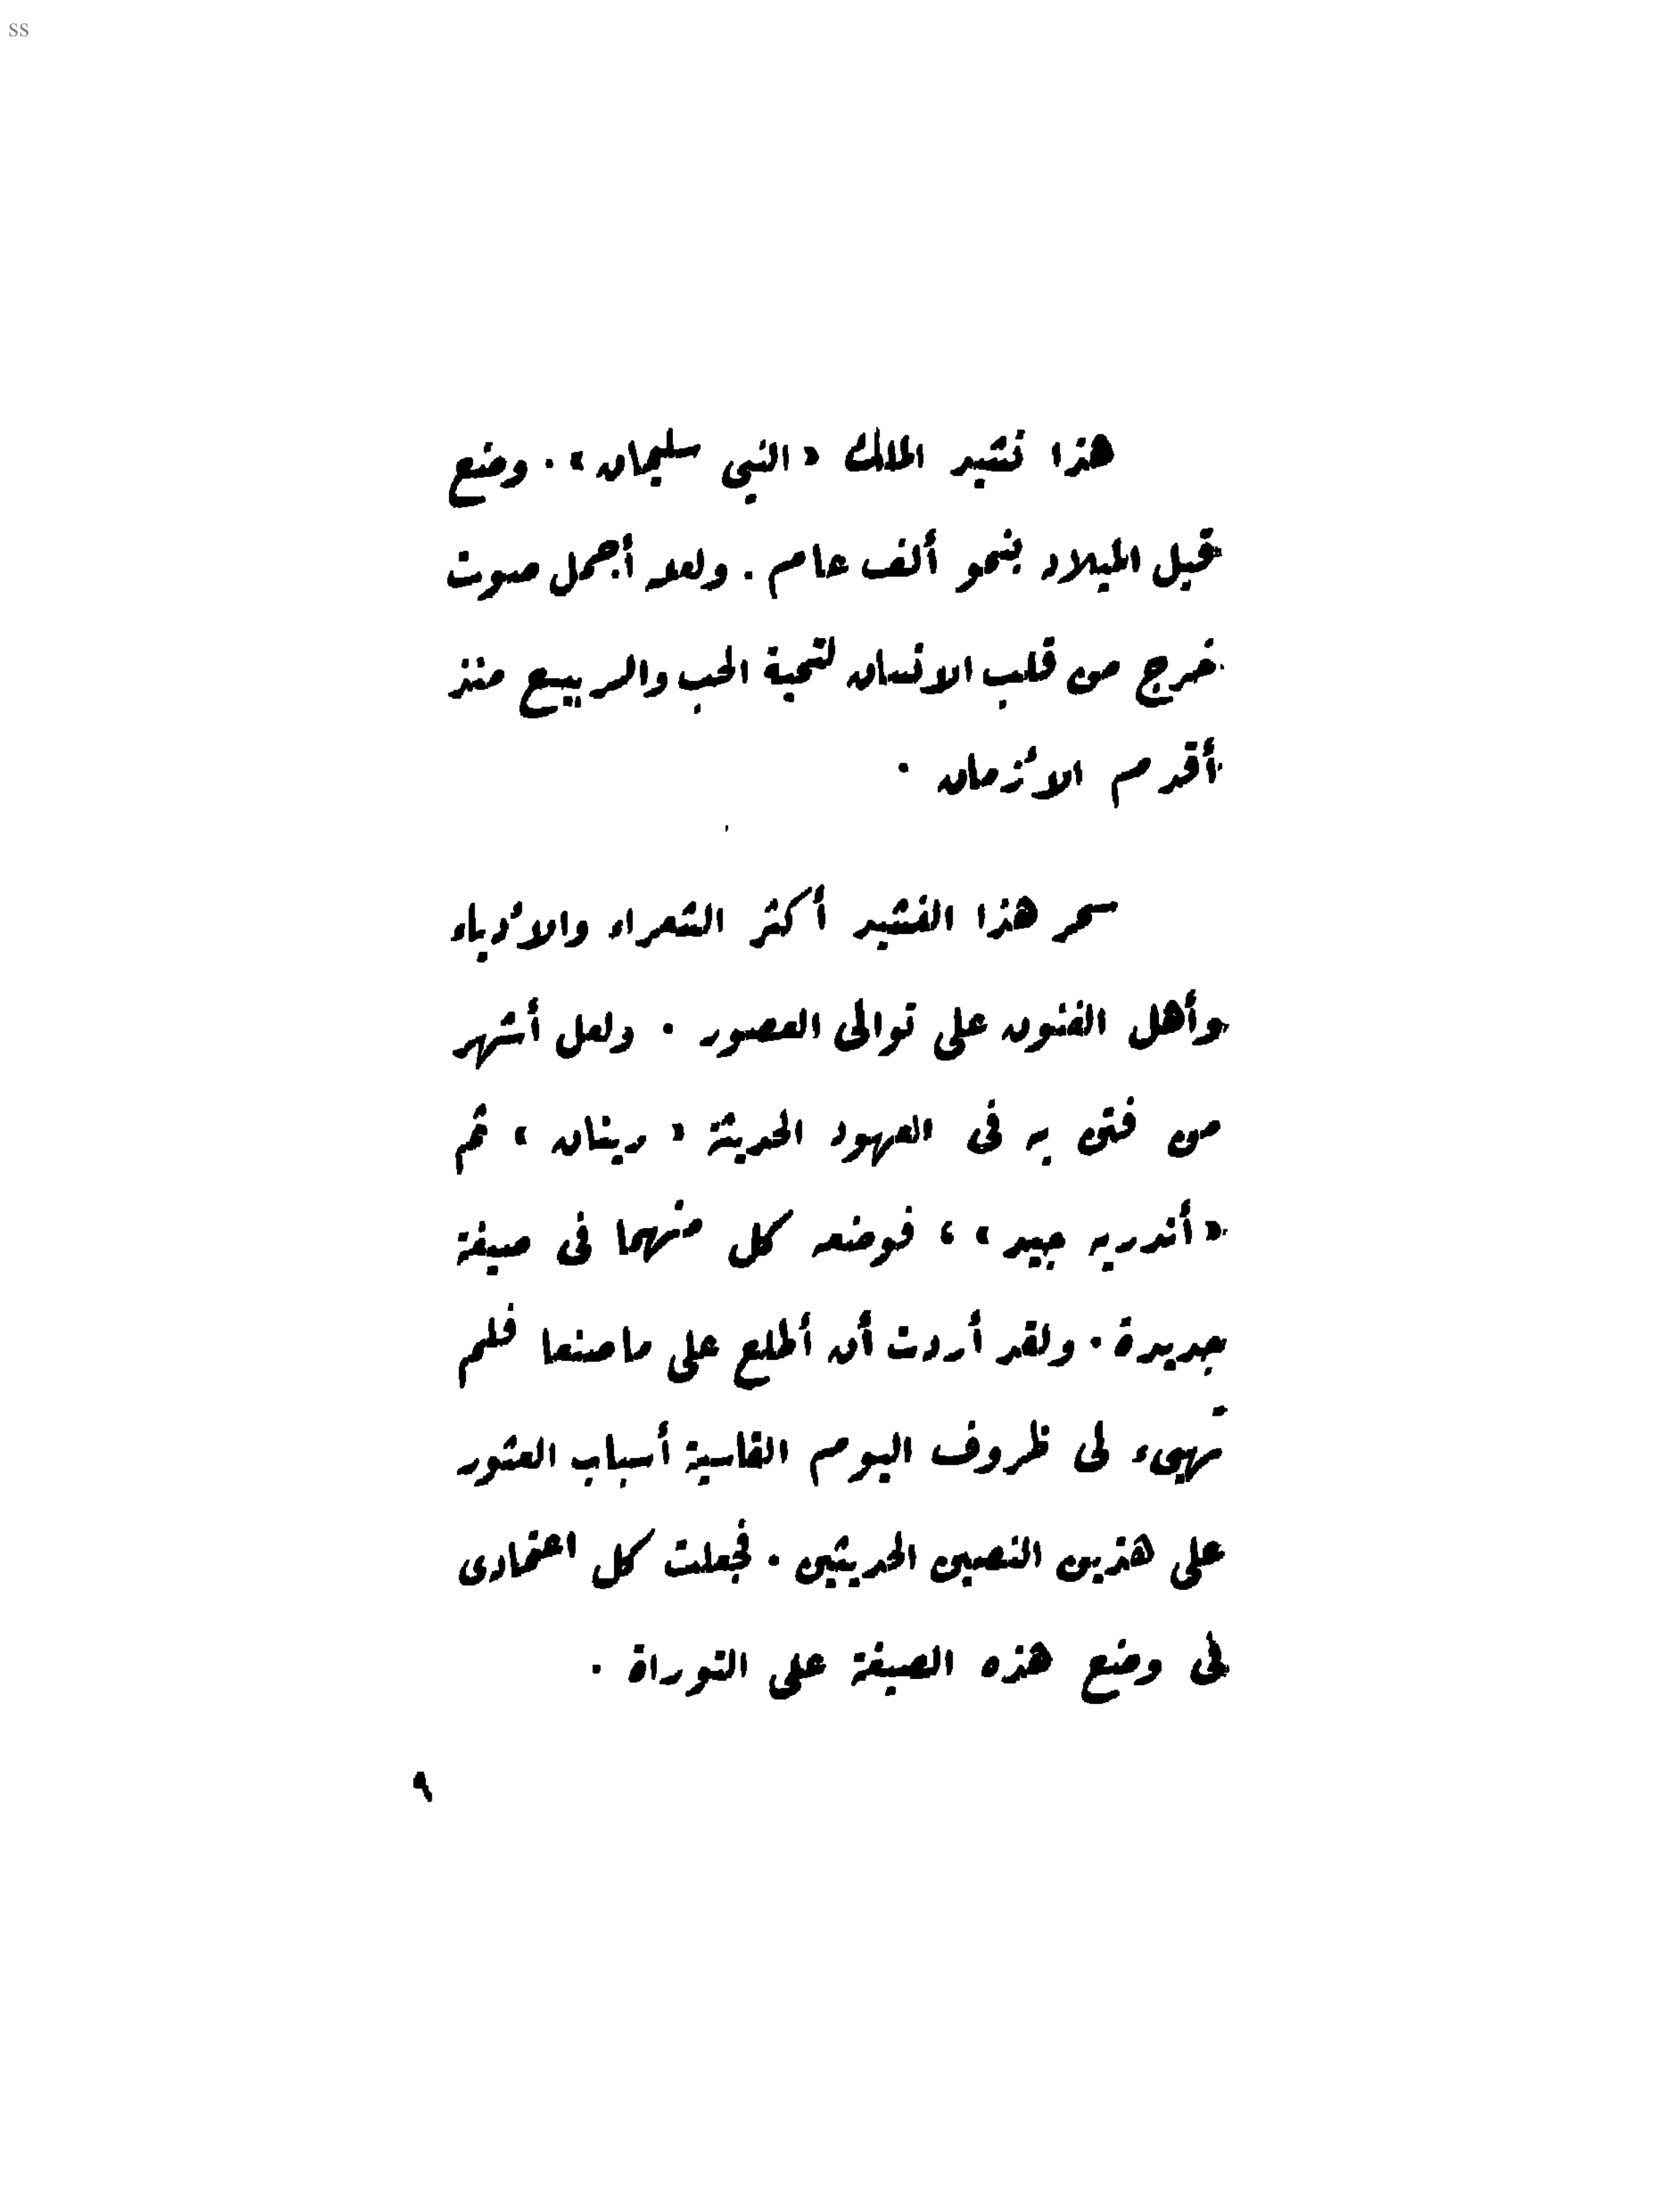 ss
هذا نشيد الملك «النبى سليمان». وضع
قبل الميلاد بنحو ألف عام. ولعله أجمل صوت
خرج من قلب الانسان لتحية الحب والربيع منذ
أقدم الأزمان.
سحر هذا النشيد أكثر الشعراء والأدباء
وأهل الفنون على توالى العصور. ولعل أشهر
من فتن به فى العهود الحديثة «رينان» ثم
«أندريه جيد»، فوضعه كل منهما فى صيغة
جديدة. ولقد أردت أن أطلع على ماصنعا فلم
تهيىء لى ظروف اليوم القاسية أسباب العثور
على هذين النصين الحديثين. فجعلت كل اعتمادى
فى وضع هذه الصيغة على التوراة.
٩